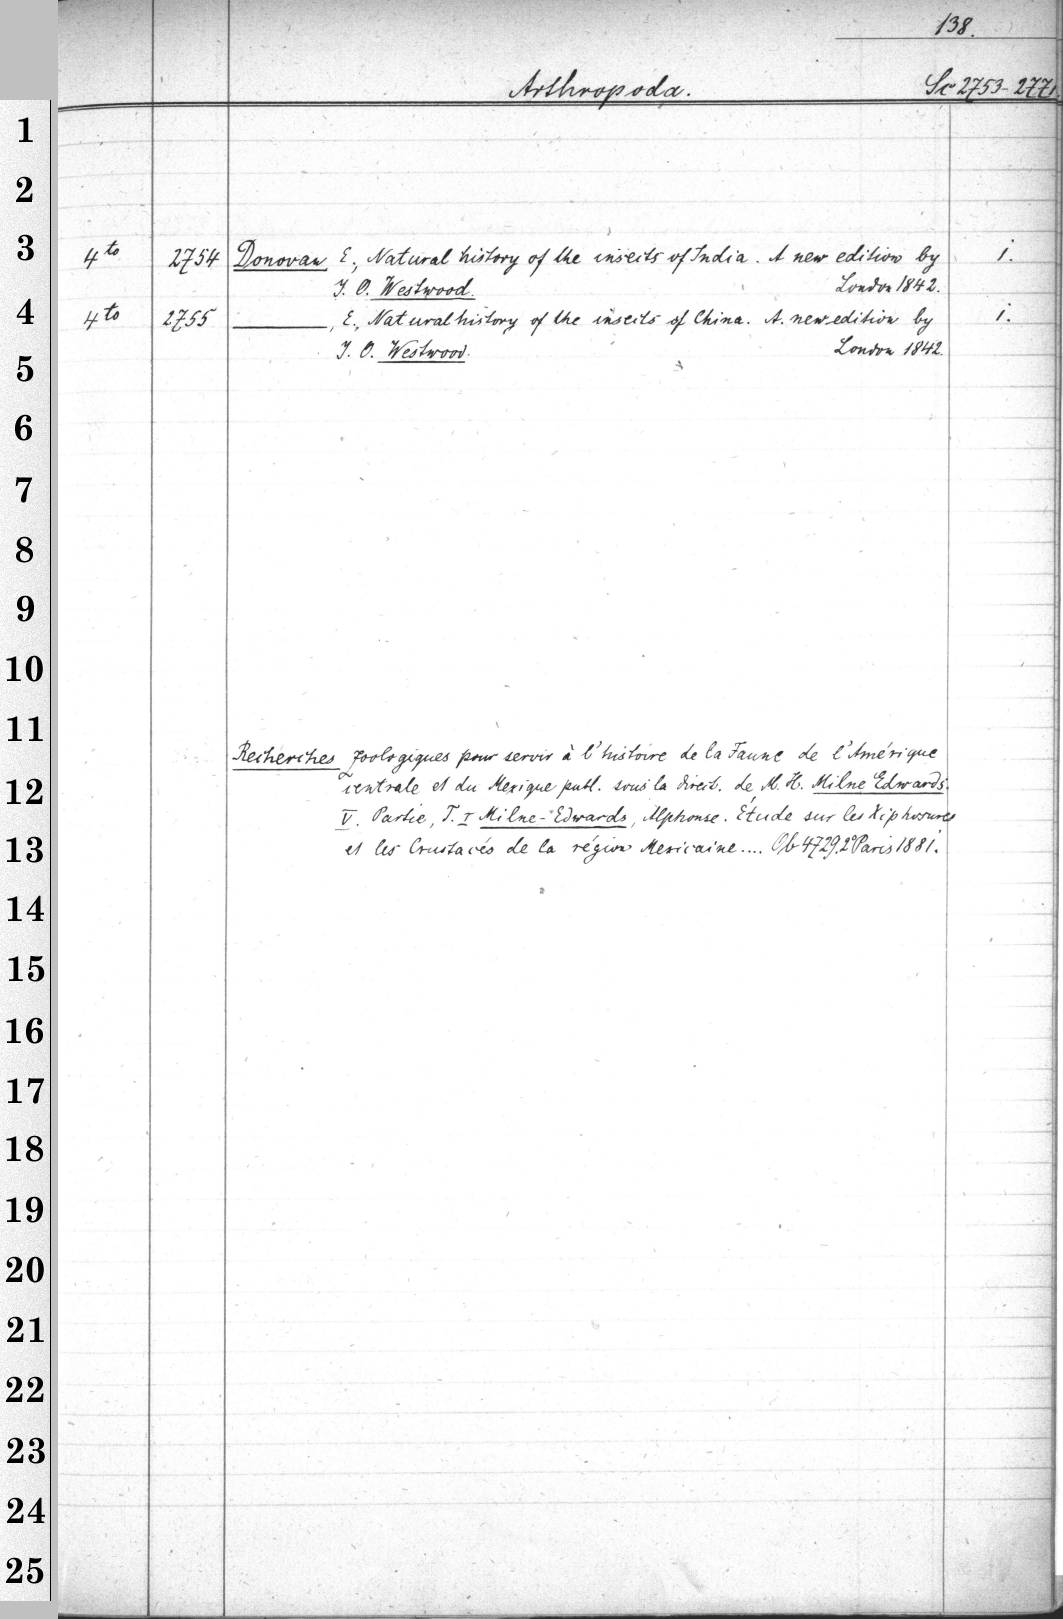 138.
Arthropoda. Sc 2753-2771
1
2
3
4to 2754 Donovan, E., Natural history of the insects of India. A new edition by 1.
J. O. Westwood. London 1842.
4
4to 2755 ———, E., Natural history of the insects of China. A. new edition by 1.
J. O. Westwood. London 1842.
5
6
7
8
9
10
11
Recherches zoologiques pour servir à l'histoire de la Faune de l'Amérique
centrale et du Mexique publ. sous la direct. de M. H. Milne Edwards.
12
V. Partie, T. I Milne-Edwards, Alphonse. Étude sur les Xiphosures
et les Crustacés de la région Mexicaine.... Ob 4729.2° Paris 1881.
13
14
15
16
17
18
19
20
21
22
23
24
25